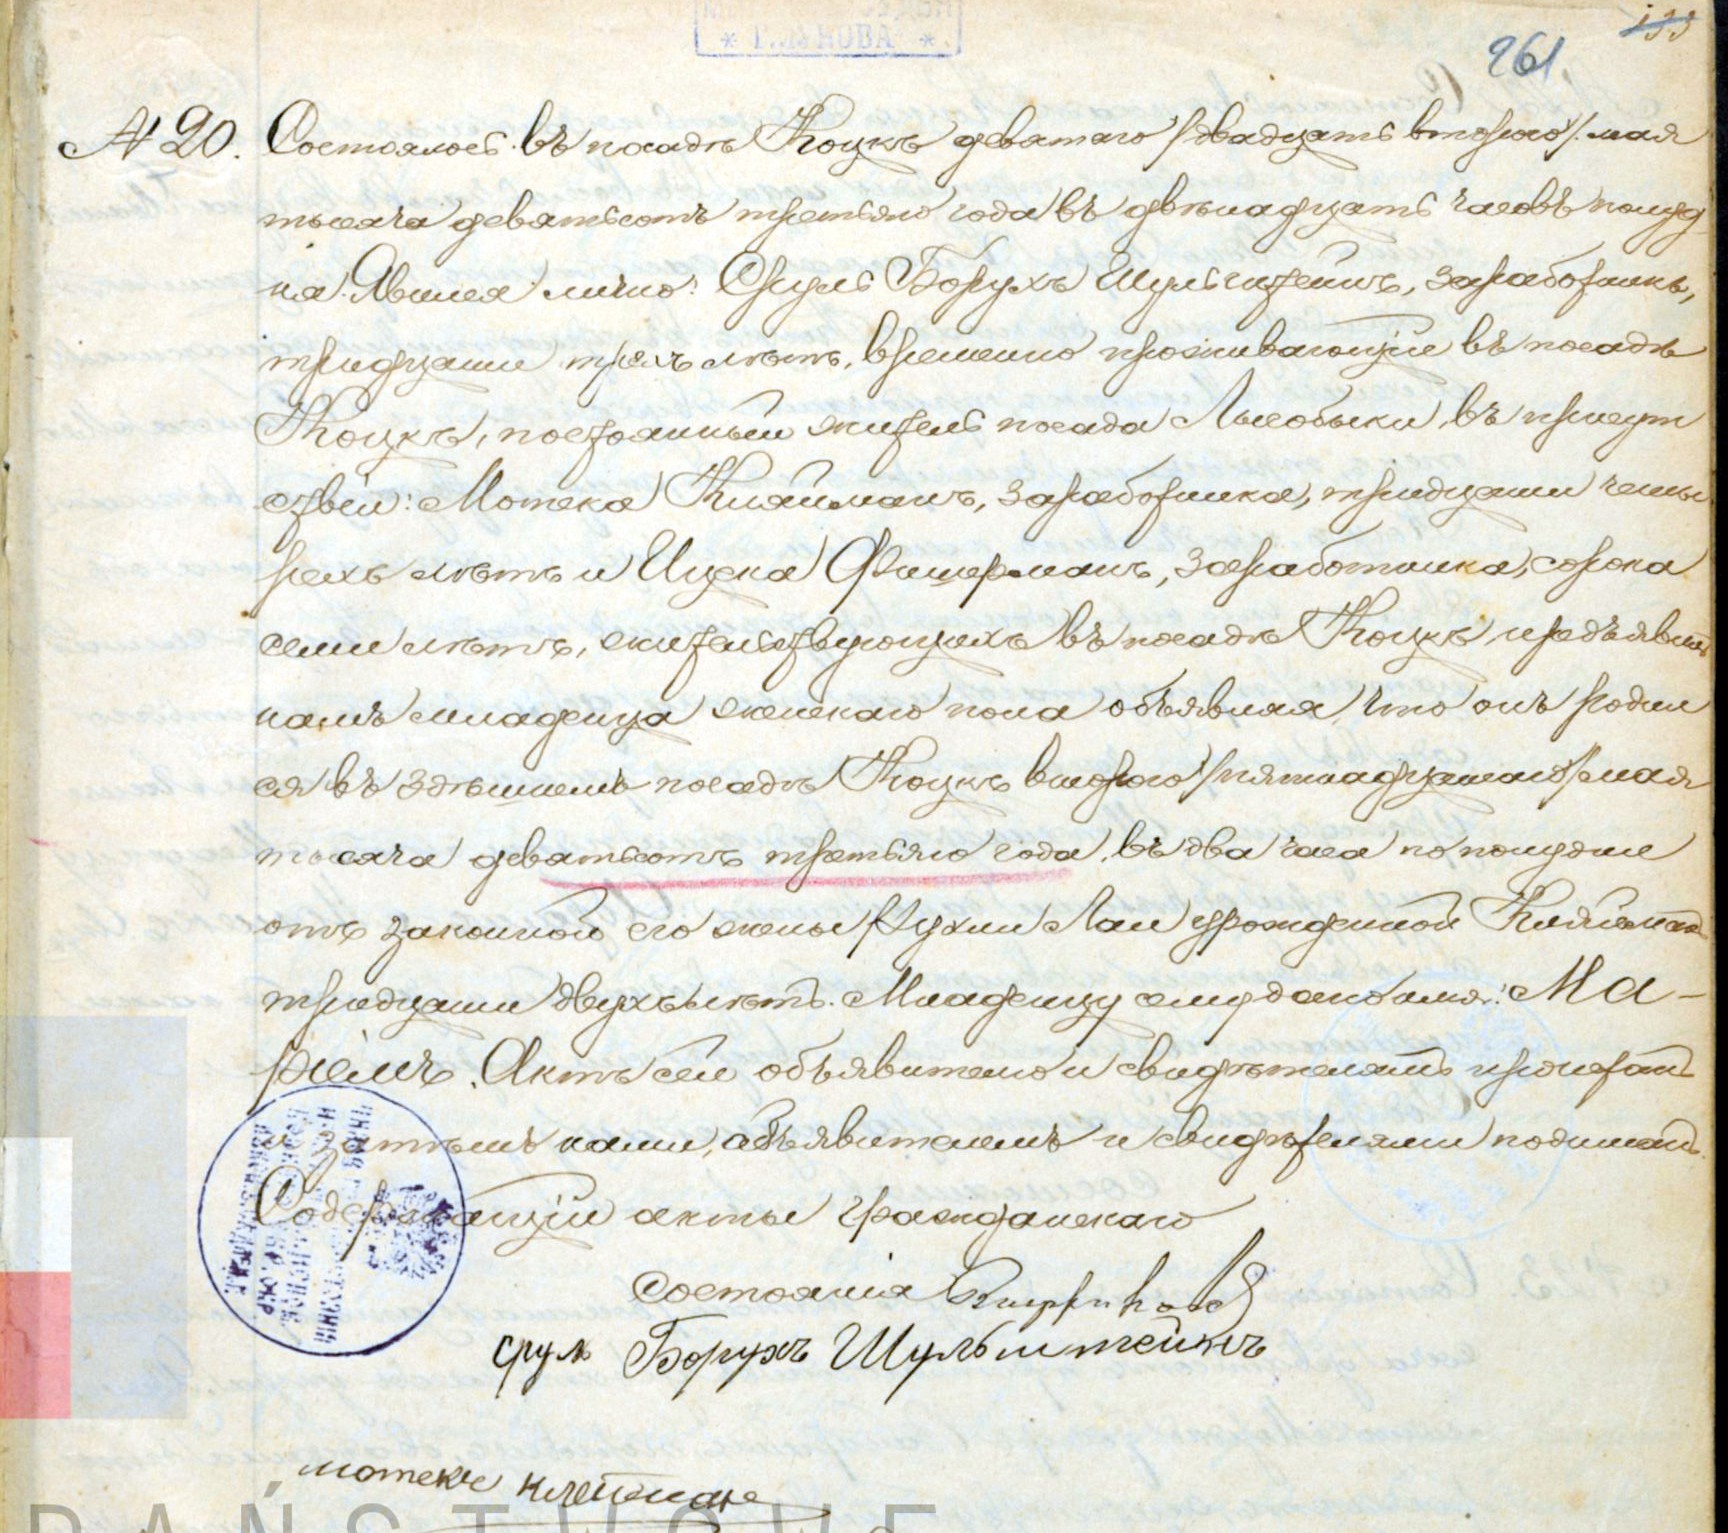 261
№ 20. Состоялось въ посадѣ Коцкъ девятаго /двадцать второго/ мая
тысяча девятьсотъ третьяго года въ двѣнадцать часовъ полуд-
ня. Явился лично: Сруль Борухъ Шульштейнъ, заработникъ,
тридцати трехъ лѣтъ, временно проживающій въ посадѣ
Коцкъ, постоянный житель посада Лысобыки, въ присут
ствіи: Мотека Кляйманъ, заработника, тридцати четы
рехъ лѣтъ и Ицека Фишерманъ, заработника, сорока
семи лѣтъ, жительствующихъ въ посадѣ Коцкъ и предъявилъ
намъ младенца женскаго пола объявляя, что онъ родил
ся въ здѣшнемъ посадѣ Коцкъ второго /пятнадцатаго/ мая
тысяча девятьсотъ третьяго года, въ два часа по полудни
отъ законной его жены Рухли Лаи урожденной Кляйманъ
тридцати двухъ лѣтъ. Младенцу сему дано имя: Ма-
ріемъ. Актъ сей объявителю и свидѣтелямъ прочитанъ
и затѣмъ нами, объявителемъ и свидѣтелями подписанъ.
Содержащій акты гражданскаго
состоянія
Сруль Борухъ Шульштейнъ
мотекъ клейманъ
PAŃSTWOWE